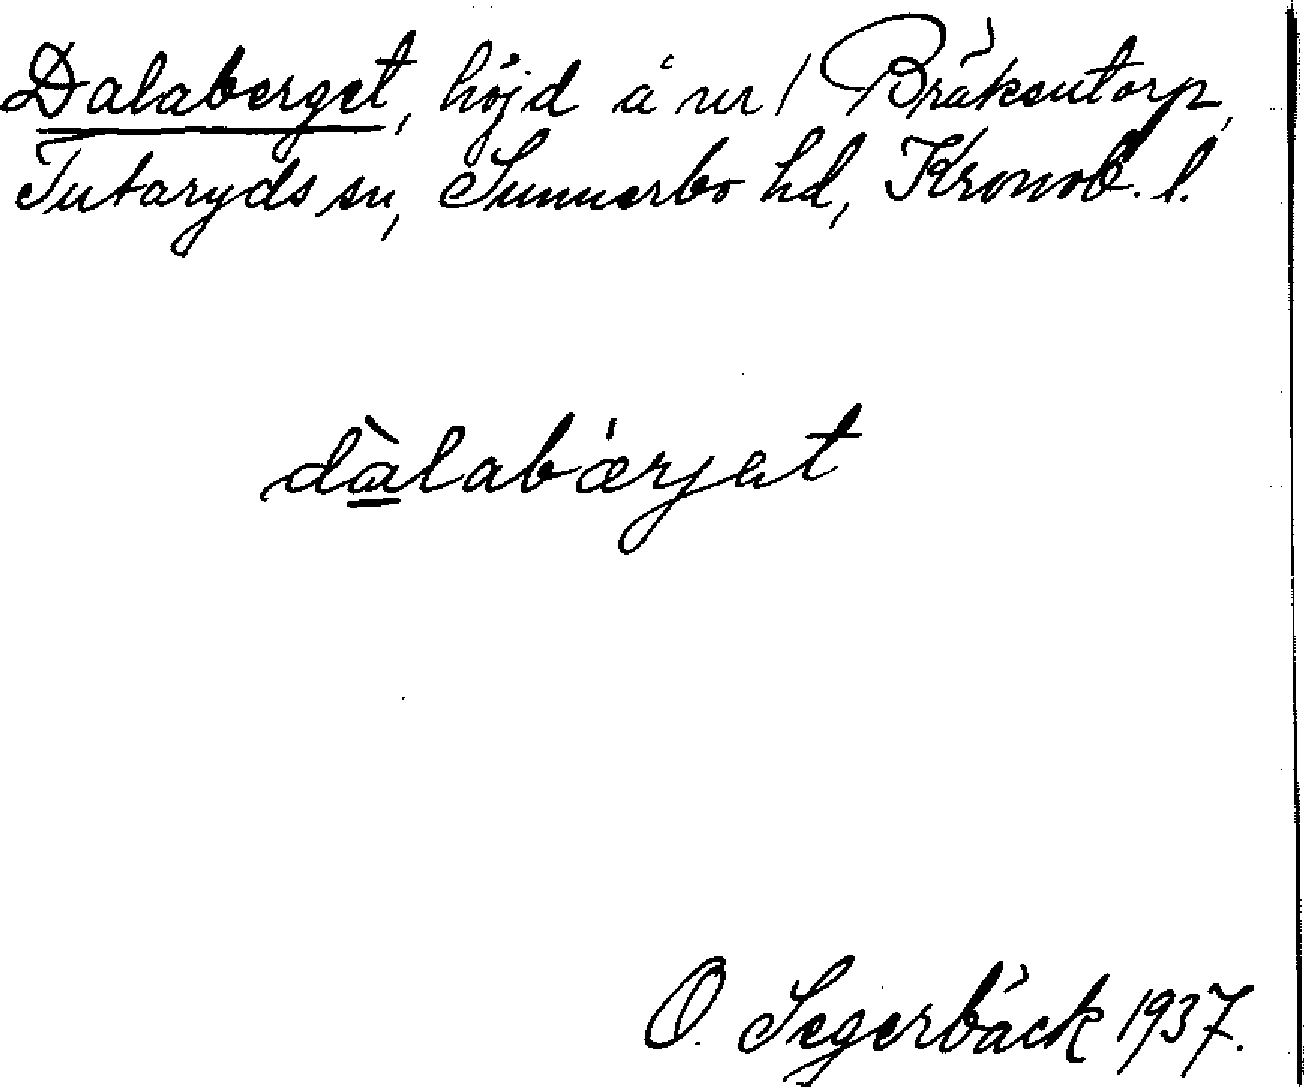 Dalaberget, höjd å nr 1 Bräkentorp,
Tutaryds sn, Sunnerbo hd, Kronob. l.
dàlabǽrjet
O. Segerbäck 1937.